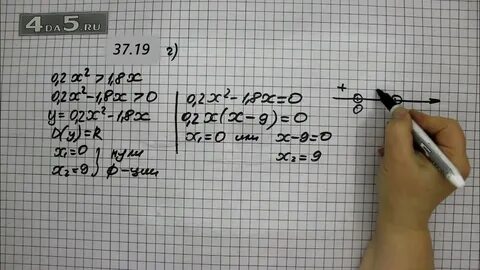 4DA5.RU
37.19 г)
0,2x² > 1,8x
0,2x² - 1,8x > 0
y = 0,2x² - 1,8x
D(y) = R
x₁ = 0 } нули
x₂ = 9 } ф-ции
0,2x² - 1,8x = 0
0,2x(x - 9) = 0
x₁ = 0 или x - 9 = 0
x₂ = 9
+
0